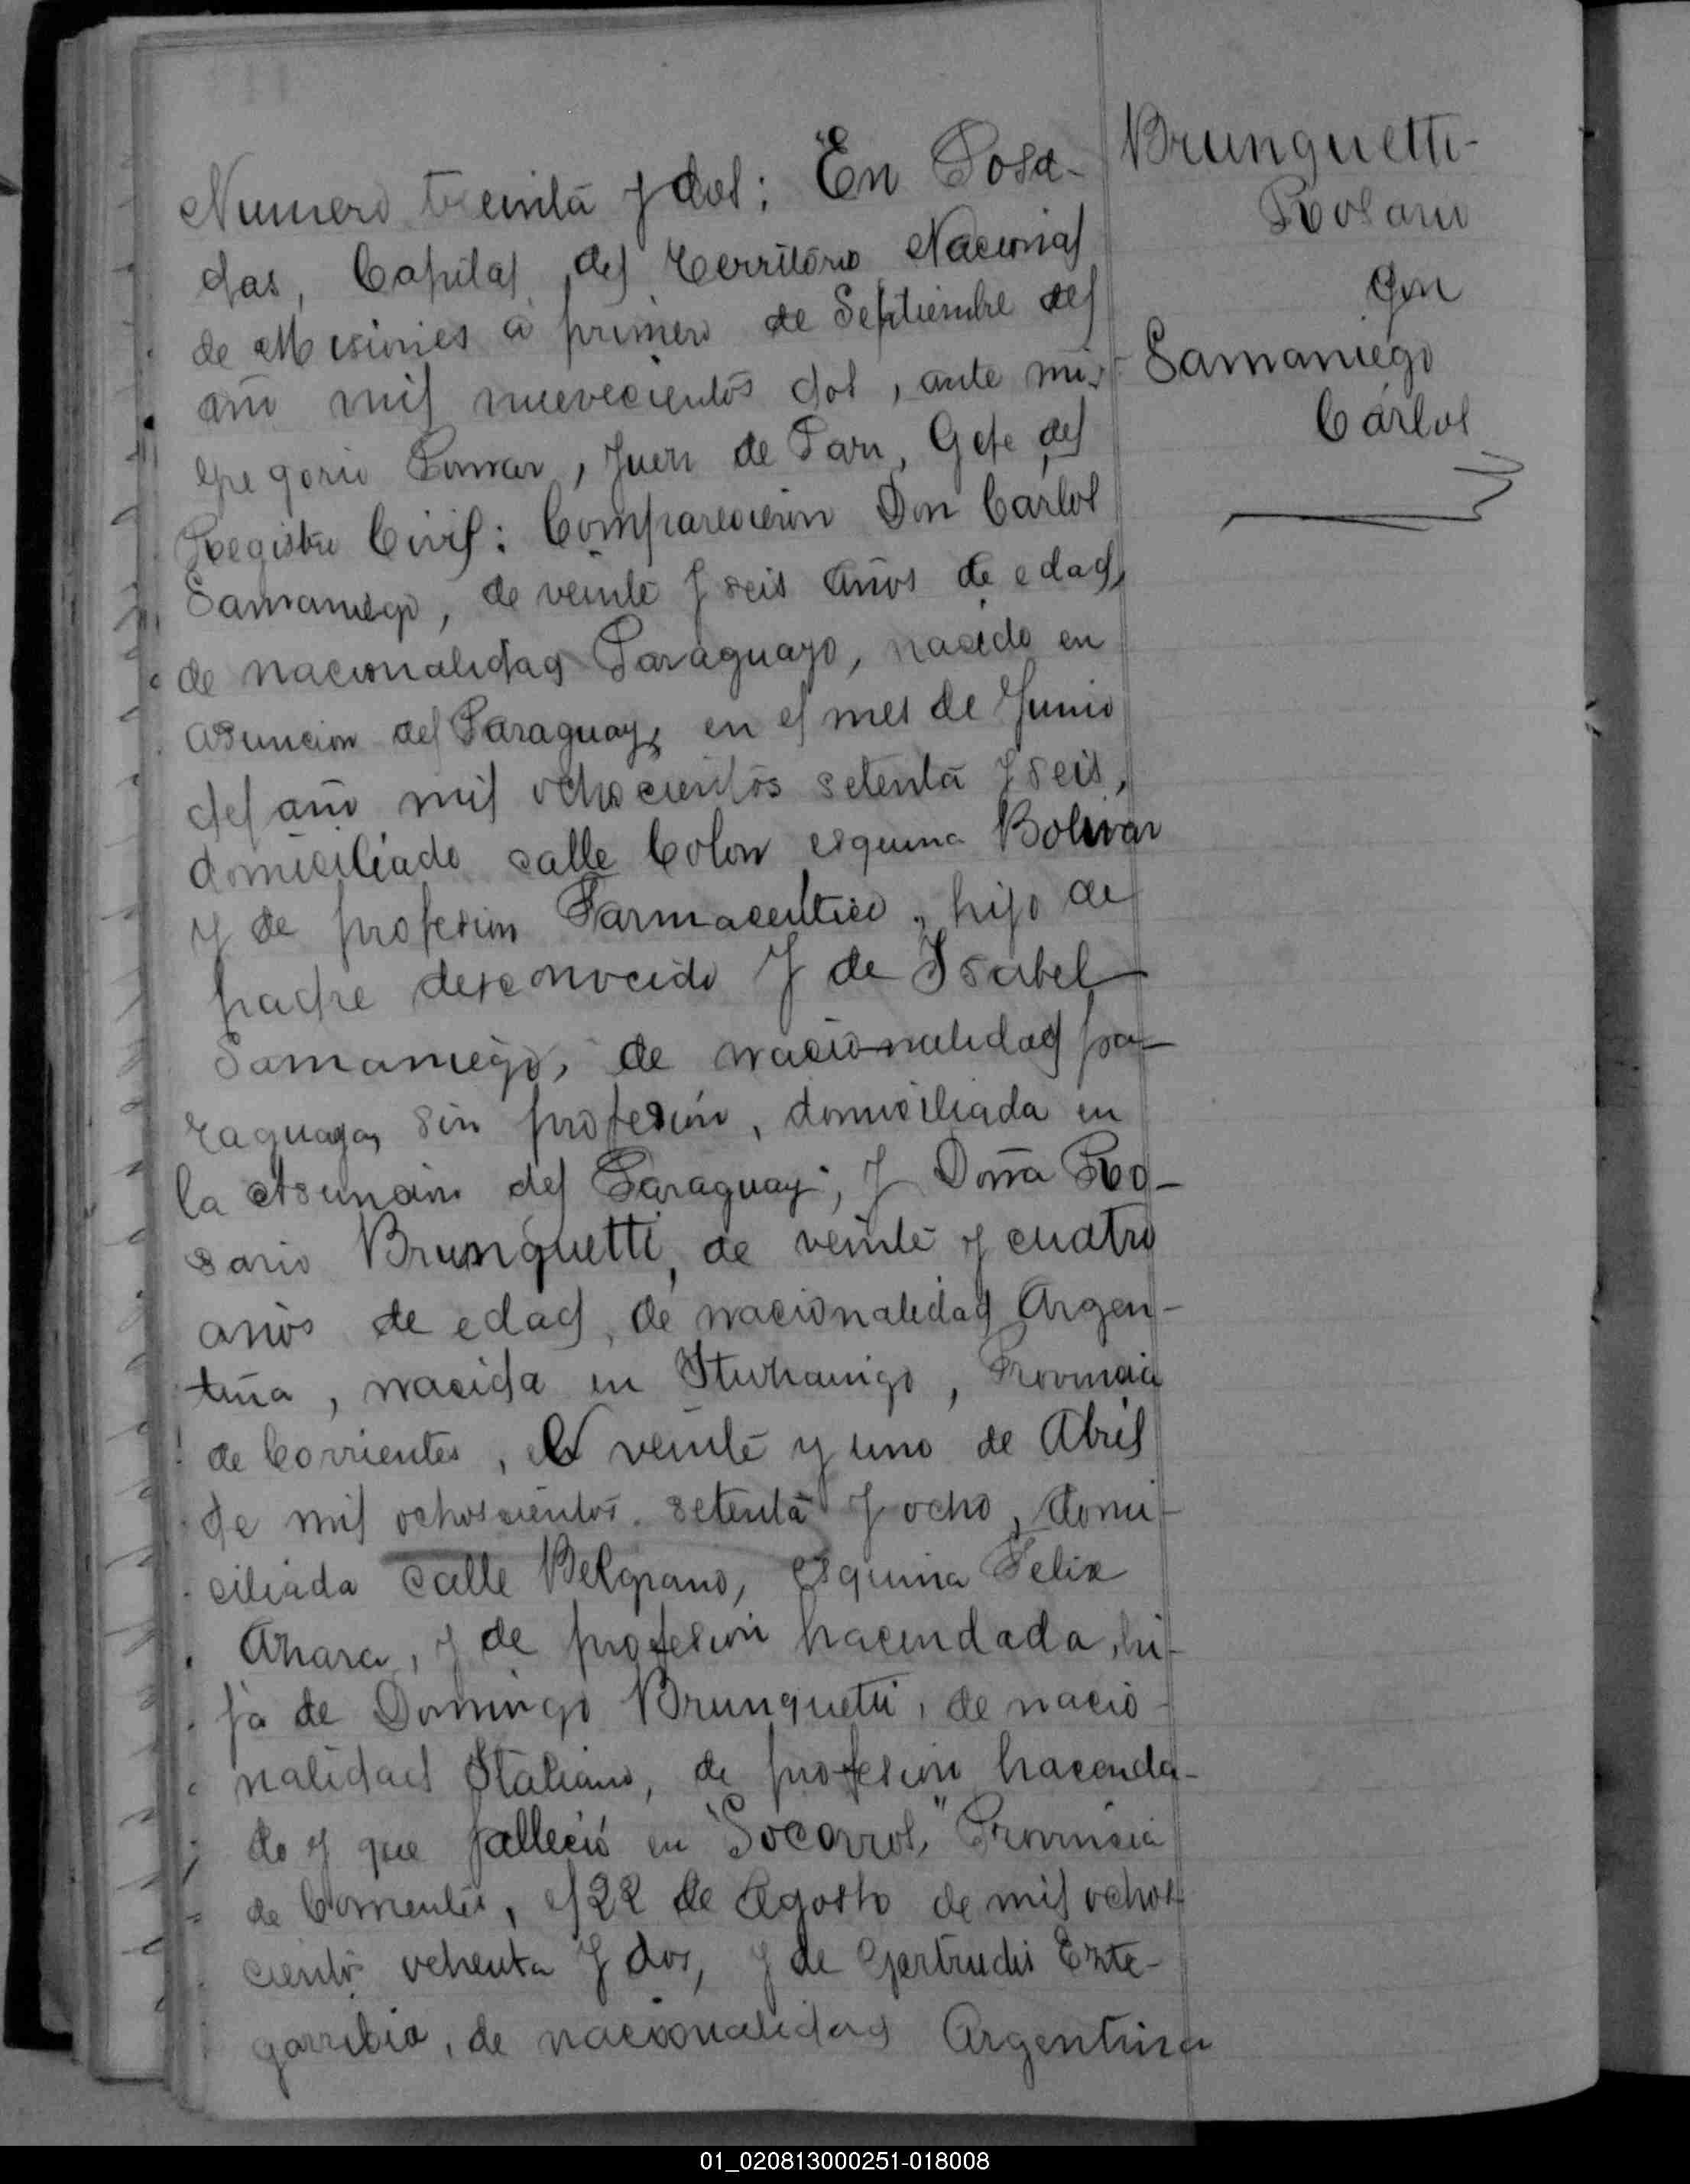 Numero treinta y dos: En Posa-
das, Capital del Territorio Nacional
de Misiones á primero de Septiembre del
año mil nuevecientos dos, ante mi,
Gregorio Juez de Paz, Gefe del
Registro Civil: Comparecieron Don Cárlos
Samaniego, de veinte y seis años de edad,
de nacionalidad Paraguayo, nacido en
Asuncion del Paraguay, en el mes de Junio
del año mil ochocientos setenta y seis,
domiciliado calle Colon esquina Bolivar
y de profesion Farmaceutico, hijo de
padre desconocido y de Isabel
Samaniego, de nacionalidad pa-
raguaya, sin profesión, domiciliada en
la Asuncion del Paraguay; y Doña Ro-
sario Brunquetti, de veinte y cuatro
años de edad, de nacionalidad Argen-
tina, nacida en Ituzaingo, Provincia
de Corrientes, el veinte y uno de Abril
de mil ochoscientos setenta y ocho, domi-
ciliada calle Belgrano, esquina Felix
Azara, y de profesion hacendada, hi-
ja de Domingo Brunquetti, de nacio-
nalidad Italiano, de profesion hacenda-
do y que falleció en "Socorros," Provincia
de Corrientes, el 22 de Agosto de mil ochos-
cientos ochenta y dos, y de Gertrudis Ezte-
garribia, de nacionalidad Argentina
Brunquetti-
Rosario
con
Samaniego
Cárlos
01_020813000251-018008